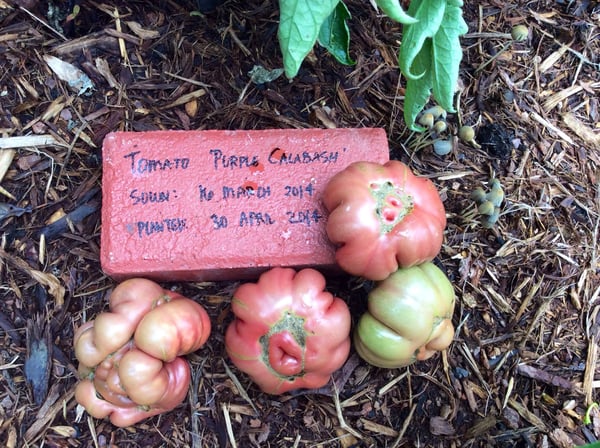 TOMATO 'PURPLE CALABASH'
SOWN: 16 MARCH 2014
PLANTED: 30 APRIL 2014